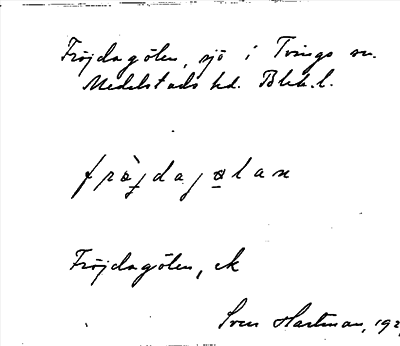 Fröjdagölen, sjö i Tvings sn.
Medelstads hd. Blek. l.
frö̀jdajølan
Fröjdagölen, ek
Sven Hartman, 192